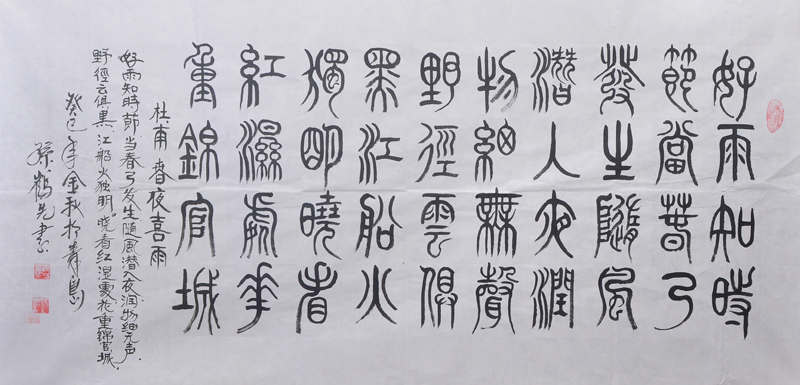 好雨知時
節當春乃
發生隨風
潛入夜潤
物細無聲
野徑雲俱
黑江船火
獨明曉看
紅濕處花
重錦官城
杜甫 春夜喜雨
好雨知時節当春乃发生随風潜入夜润物细无声.
野徑云俱黑、江船火独明。晓看红湿處花重錦官城.
癸巳年金秋於青島
孫鶴先書